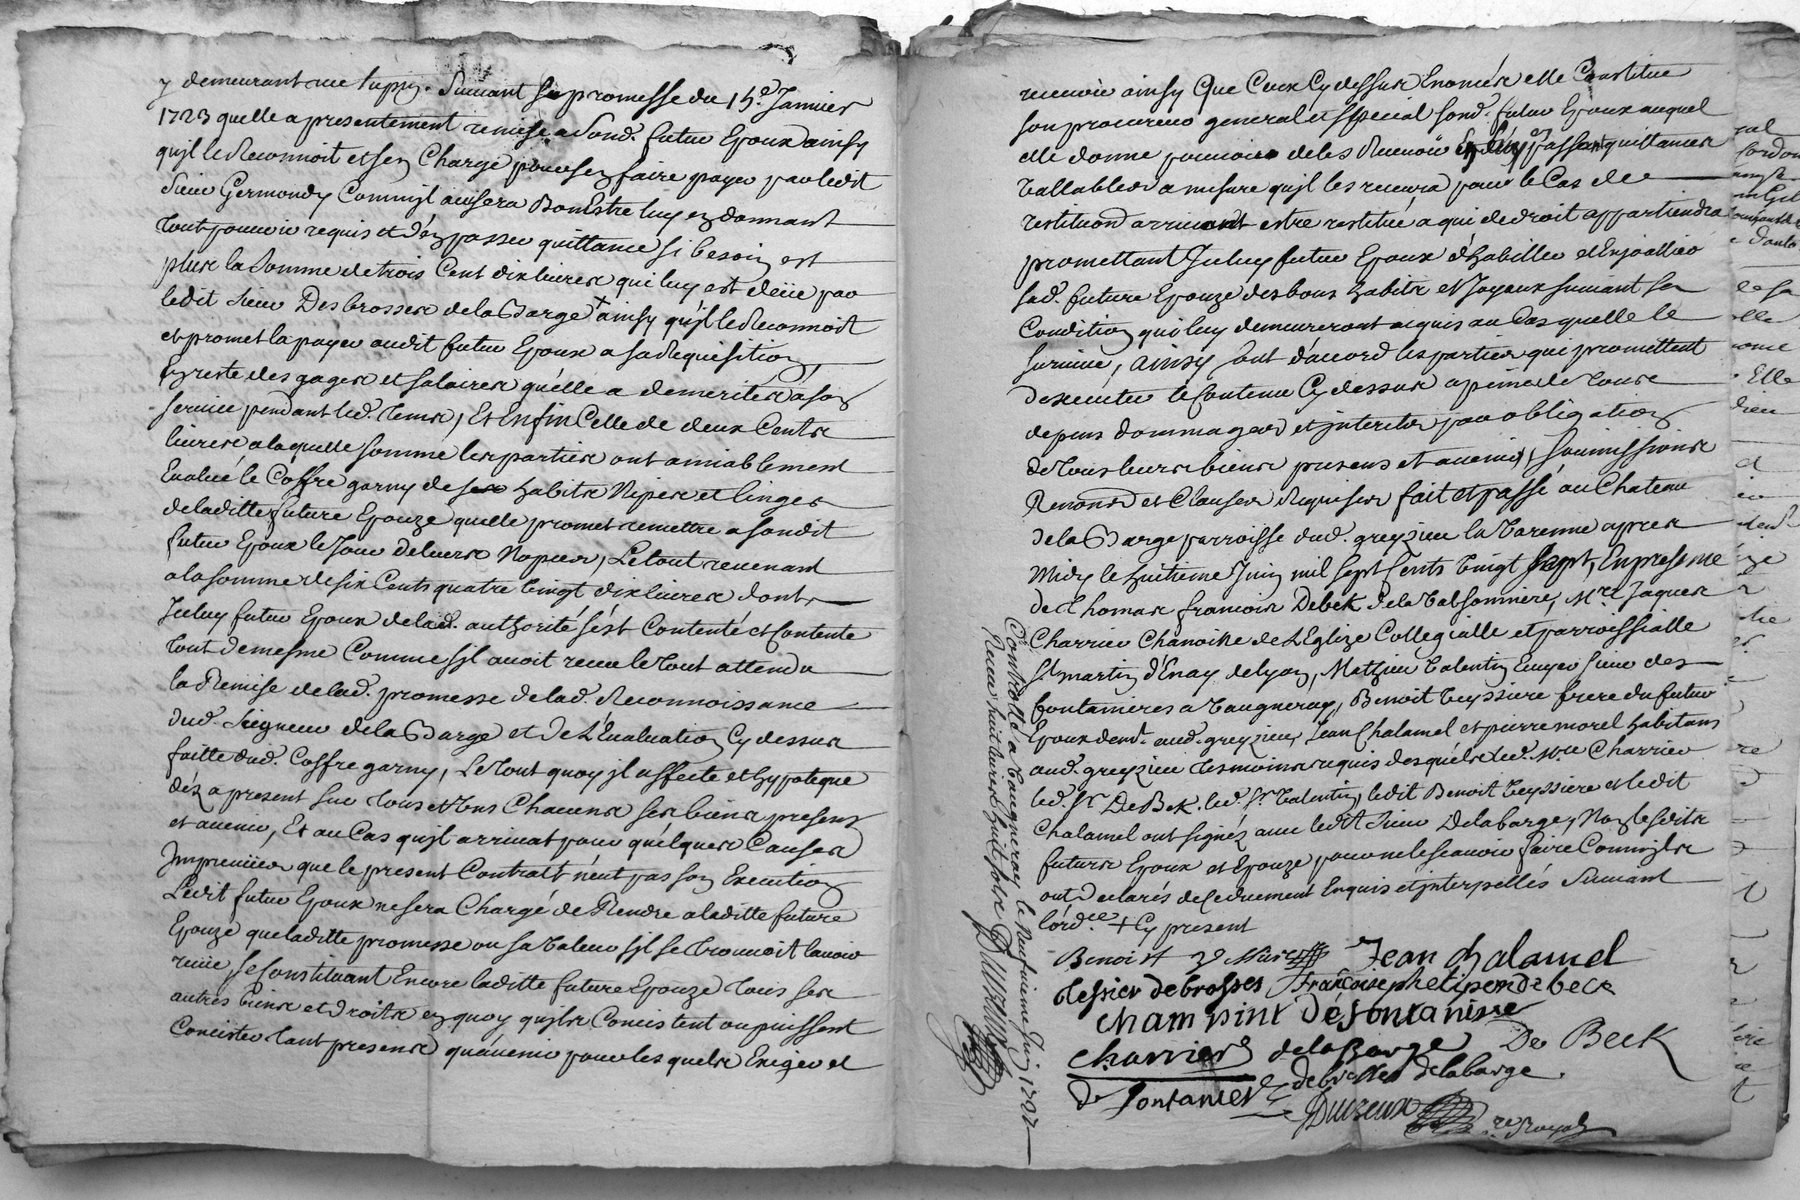 y demeurant rue Suivant Sa promesse du 15e. Janvier
1723 quelle a presentement remise a Sond. futur Epoux ainsy
qu'jl le Reconnoit et s'en Charge pour s'en faire payer par ledit
Sieur Germondy Comme jl avisera Bon Estre luy en donnant
tout pouvoir requis et d'en passer quittance si besoin est
plus la Somme de trois Cent dix livres qui luy est deüe par
ledit Sieur Desbrosses de la Barge + ainsy qu'jl le Reconnoit
et promet la payer audit futur Epoux a sa Requisition
En reste des gages et Salaires qu'elle a demerités a son
service pendant led. tems, Et Enfin Celle de deux Cents
livres a laquelle somme les parties ont amiablement
Evalué le Coffre garny de ses habits Nipes et linges
de laditte future Epouze quelle promet remettre a sondit
futur Epoux le Jour de leurs Nopces, Le tout revenant
a la somme de six Cents quatre vingt dix livres dont
Jceluy futur Epoux de lad. authorité s'est Contenté et Contente
tout de mesme Comme s'jl avoit receu le tout attendu
la Remise de lad. promesse de lad. Reconnoissance
dud. Seigneur de la Barge et de L'Evaluation Cy dessus
faitte dud. Coffre garny, Le tout quoy jl affecte et hypoteque
déz a present sur tous et uns Chacuns ses biens presens
et avenir, Et au Cas qu'jl arrivat pour quélques Causes
Impreveües que le present Contract n'eut pas son Execution
Ledit futur Epoux ne sera Chargé de Rendre a laditte future
Epouze que laditte promesse ou sa valeur s'jl se trouvoit l'avoir
reüe, Se Constituant Encore laditte future Epouze tous ses
autres biens et droits en quoy qu'jls Concistent ou puissent
Concister tant presens qu'avenir pour lesquels Exiger et
recevoir ainsy Que Ceux Cy dessus Enoncés elle Constitue
son procureur general et special sond. futur Epoux auquel
elle donne pouvoir de les Recevoir passer quittances
vallables a mesure qu'jl les recevra pour le Cas de
restitution arrivant estre restitué a qui de droit appartiendra
promettant Jceluy futur Epoux d'habiller et Enjoailler
sad. future Epouze des bons habits et Joyaux suivant sa
Condition qui luy demeureront acquis au Cas quelle le
survive, ainsy sont d'accord les parties qui promettent
d'executer le Contenu Cy dessus a peine de tous
depens dommages et interets par obligation
de tous leurs biens presens et avenir, soumissions
Renons. et Clauses Requises fait et passé au Chateau
de la Barge parroisse dud. greyzieu la Varenne apres
Midy le huitieme Juin mil sept Cents vingt Sept, En presence
de Thomas francois Debek de la Valsonniere, Mre. Jaques
Charrier Chanoine de L'Eglize Collegialle et parroissialle
St. martin d'Enay de lyon, Mathieu Valentin Ecuyer Sieur des
fontanieres a Vaugneray, Benoit teyssiere frere du futur
Epoux demt. aud. greyzieu, Jean Chalamel et pierre morel habitans
aud. greyzieu tesmoins requis desquéls led. Mre. Charrier
led. Sr. De Bek. led. Sr. Valentin, ledit Benoit teyssiere et ledit
Chalamel ont signéz avec ledit Sieur Delabarge, Non lesdits
futurs Epoux et Epouze pour ne le scavoir faire Comme jls
ont declarés de Ce duement Enquis et jnterpellés Suivant
l'ord.ce + Cy present
Benoist Jean chalamel
tessier debrosses Françoise phelipon debeck
champint désfontanisse
charrier delabarge De Beck
de fontanier debrosses delabarge
Duizeux re Royal
Controllé a Vaugneray le neufvieme Juin 1727
Receu huit livres huit sols Duizeux